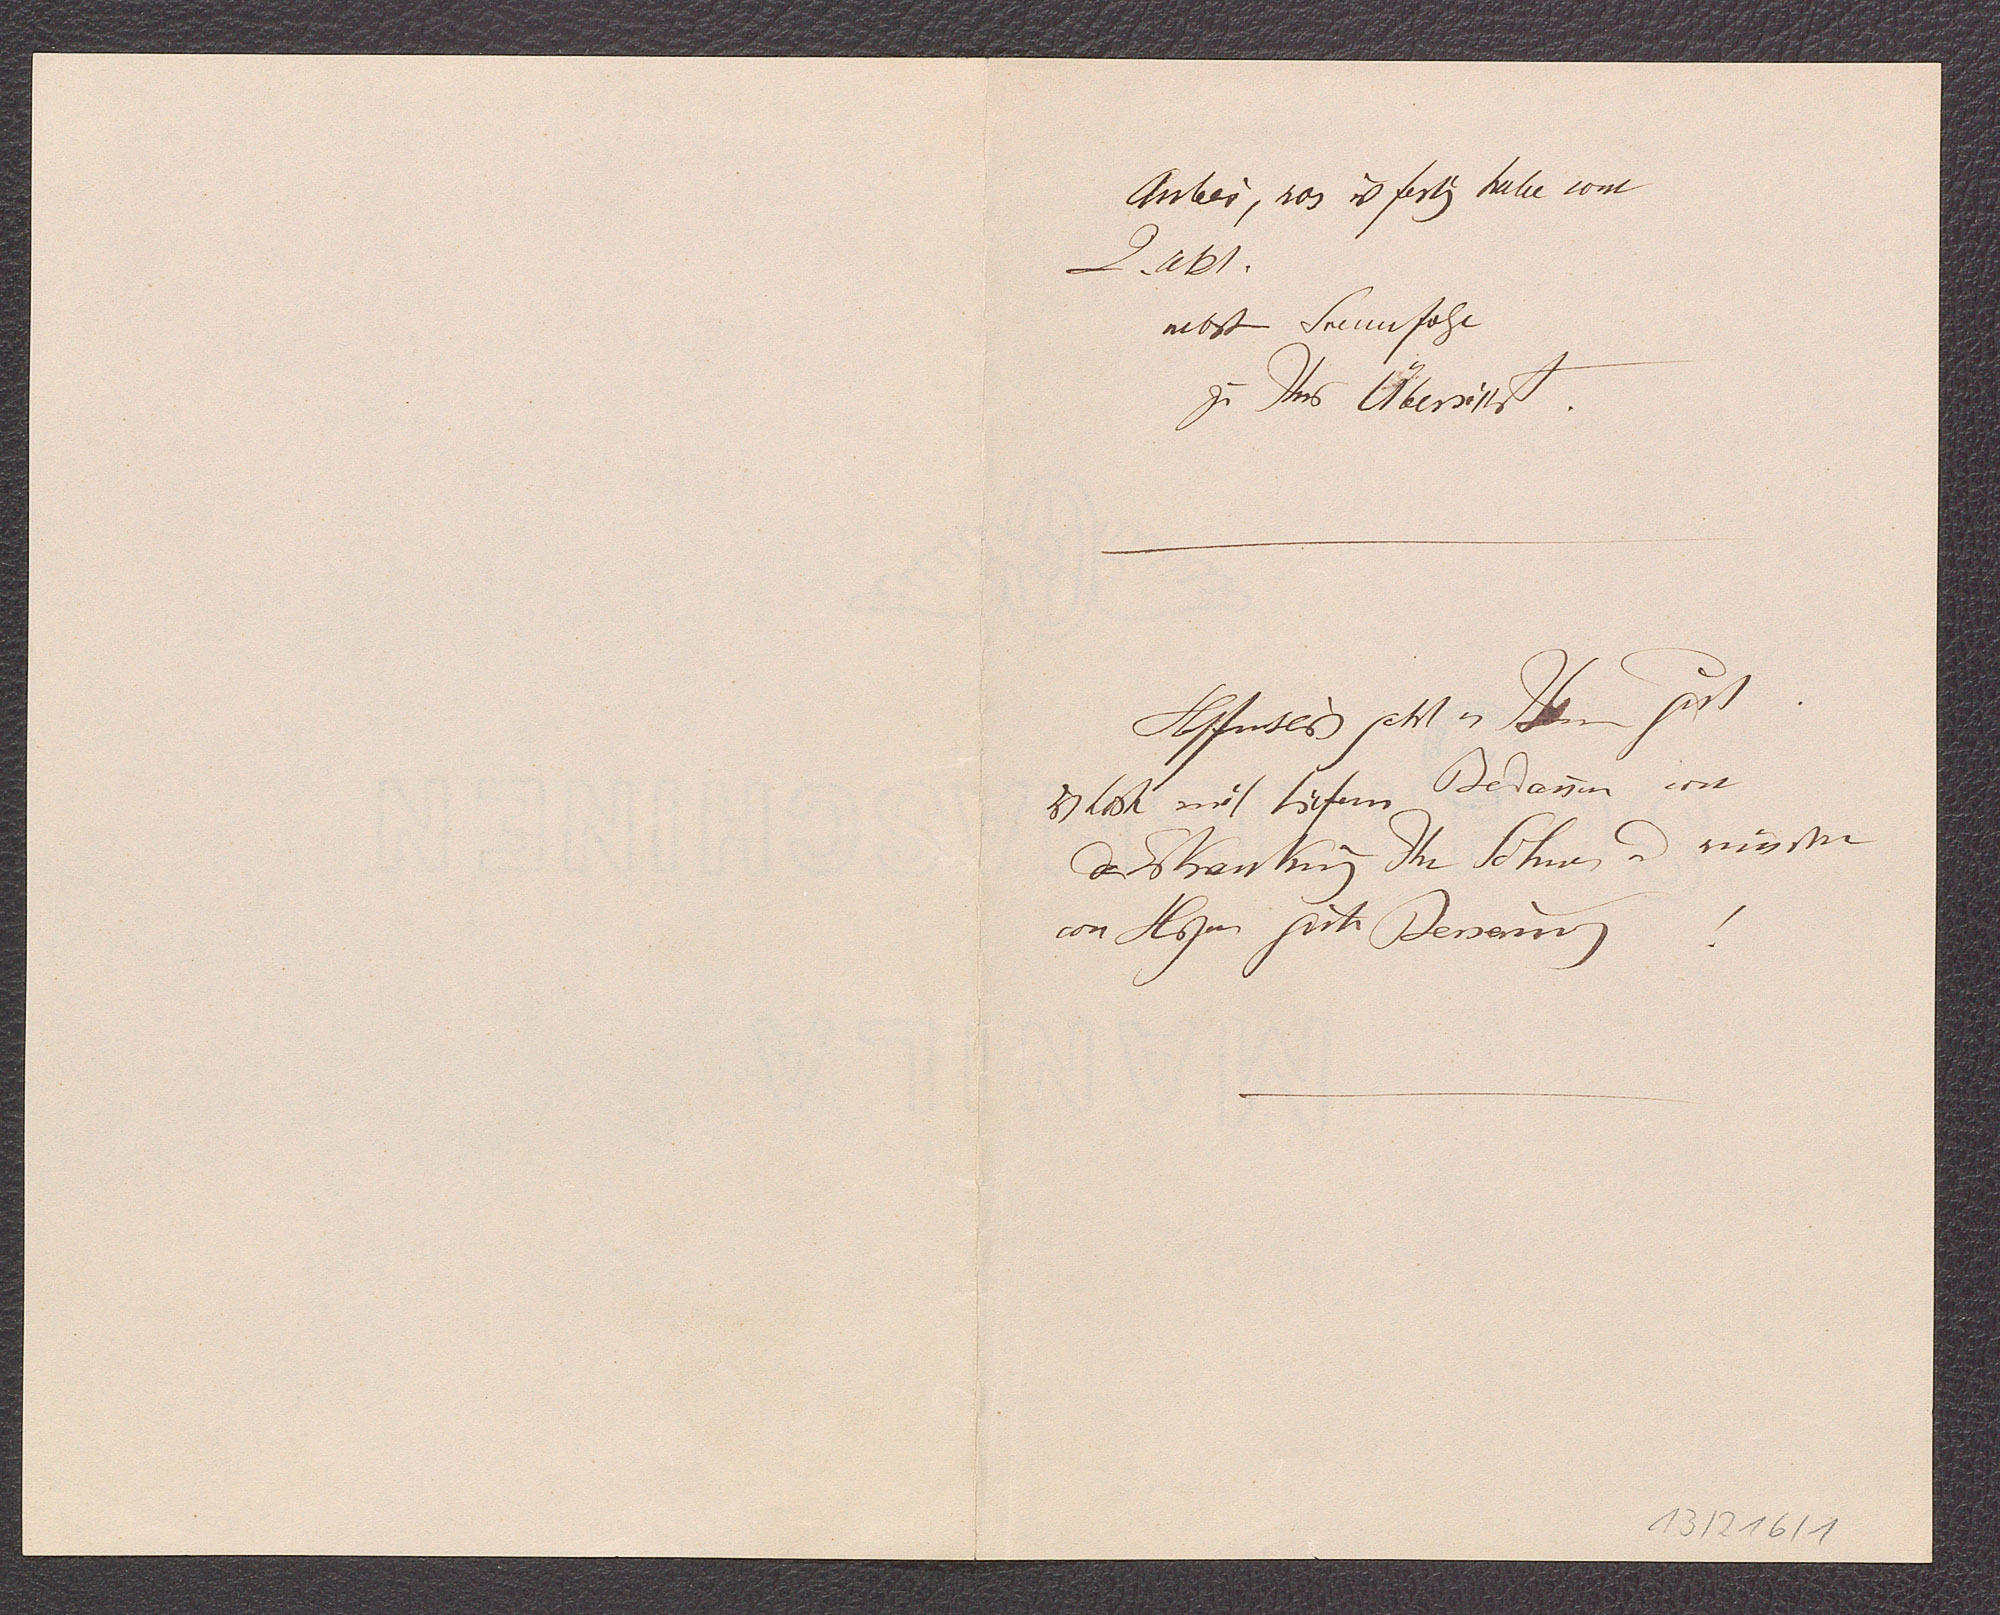 Anbei, was ich fertig habe vom
2. Akt.
nebst Scenenfolge
zu Ihrer Übersicht.
Hoffentlich geht es Ihnen gut.
Ich höre mit tiefem Bedauern von
der Erkrankung Ihres Sohnes und wünsche
von Herzen gute Besserung!
13/216/1